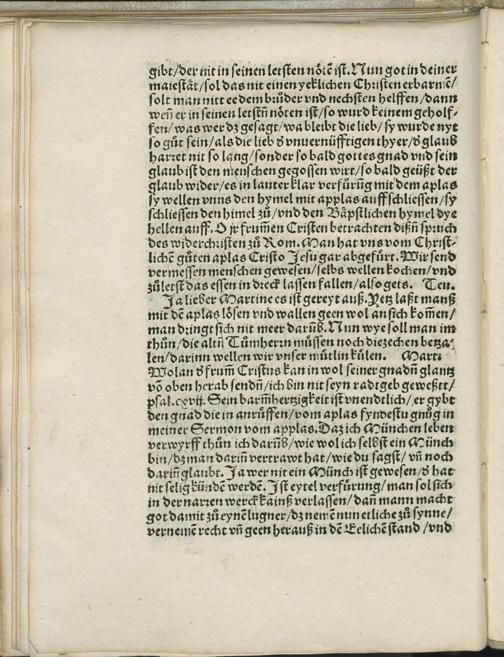 gibt/der nit in seinen letsten nötē ist. Nun got in deiner
maiestät/sol das nit einen yeklichen Christen erbarmē/
solt man nitt ee dem brůder vnd nechsten helffen/dann
weñ er in seinen letstñ nöten ist/so wurd keinem geholf-
fen/was werdz gesagt/wa bleibt die lieb/sy wurde nyt
so gůt sein/als die lieb ď vnuernüfftigen thyer/ď glaub
harret nit so lang/sonder so bald gottes gnad vnd sein
glaub ist den menschen gegossen wirt/so bald geüßt der
glaub wider/es in lauter klar verfůrũg mit dem aplas
sy wellen vnns den hymel mit applas auffschliessen/sy
schliessen den himel zů/vnd den Bäpstlichen hymel dye
hellen auff. O jr frum̃en Cristen betrachten disñ spruch
des widerchristen zů Rom. Man hat vns vom Christ-
lichē gůten aplas Cristo Jesu gar abgefürt. Wir send
vermessen menschen gewesen/selbs wellen kochen/vnd
zůletst das essen in dreck lassen fallen/also gets. Teu.
Ja lieber Martine es ist gereyt auß. Yetz laßt manß
mit dē aplas lösen vnd wallen geen wol an sich kom̃en/
man dringt sich nit meer darũb. Nun wye soll man im
thůn/die altñ Tům̃herrn müssen noch die zechen betza-
len/darinn wellen wir vnser můtlin kůlen. Marti
Wolan ď frum̃ Cristus kan in wol seiner gnadñ glantz
vō oben herab sendñ/ich bin nit seyn radtgeb geweßt/
psal. cxvij. Sein barm̃hertzigkeit ist vnendtlich/er gybt
den gnad die in anrůffen/vom aplas fyndestu gnůg in
meiner Sermon vom applas. Daz ich München leben
verwyrff thůn ich darũb/wie wol ich selbst ein Münch
bin/dz man dariñ vertrawt hat/wie du sagst/vñ noch
dariñ glaubt. Ja wer nit ein Münch ist gewesen/ď hat
nit selig kündē werdē. Ist eytel verfürung/man sol sich
in der narren werck kainß verlassen/dañ mann macht
got damit zů eynē lugner/dz nemē nun etliche zů synne/
vernemē recht vñ geen herauß in dē Eelichē stand/vnd